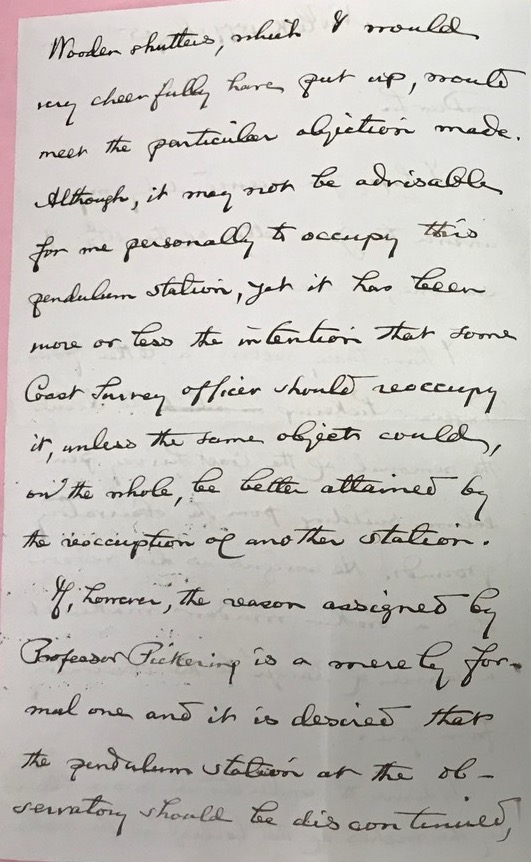 Wooden shutters, which I would
very cheerfully have put up, would
meet the particular objection made.
Although, it may not be advisable
for me personally to occupy this
pendulum station, yet it has been
more or less the intention that some
Coast Survey officer should reoccupy
it, unless the same objects could,
on the whole, be better attained by
the reoccuption of another station.
If, however, the reason assigned by
Professor Pickering is a merely for-
mal one and it is desired that
the pendulum station at the ob-
servatory should be discontinued,